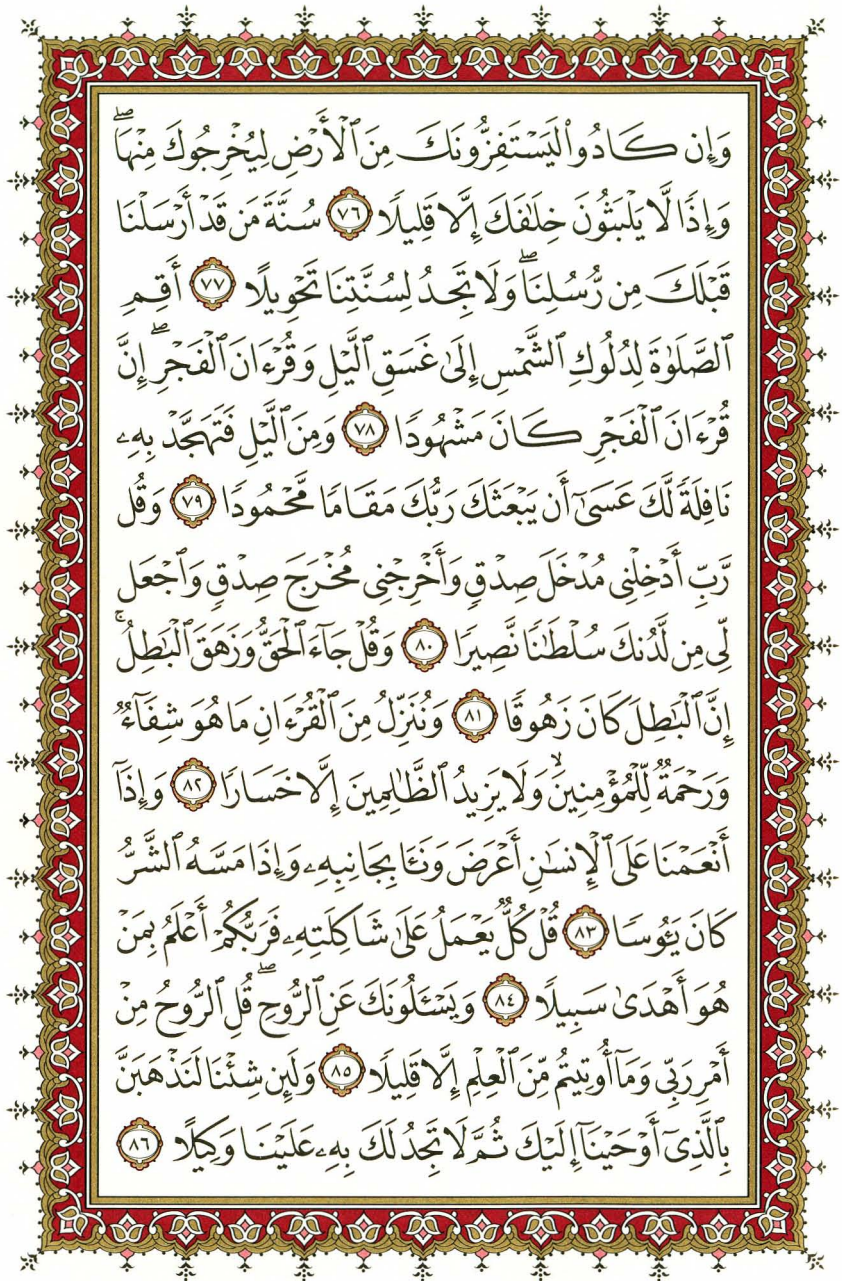 وَإِن كَادُوا۟ لَيَسْتَفِزُّونَكَ مِنَ ٱلْأَرْضِ لِيُخْرِجُوكَ مِنْهَا ۖ
وَإِذًا لَّا يَلْبَثُونَ خِلَٰفَكَ إِلَّا قَلِيلًا ٧٦ سُنَّةَ مَن قَدْ أَرْسَلْنَا
قَبْلَكَ مِن رُّسُلِنَا ۖ وَلَا تَجِدُ لِسُنَّتِنَا تَحْوِيلًا ٧٧ أَقِمِ
ٱلصَّلَوٰةَ لِدُلُوكِ ٱلشَّمْسِ إِلَىٰ غَسَقِ ٱلَّيْلِ وَقُرْءَانَ ٱلْفَجْرِ ۖ إِنَّ
قُرْءَانَ ٱلْفَجْرِ كَانَ مَشْهُودًا ٧٨ وَمِنَ ٱلَّيْلِ فَتَهَجَّدْ بِهِۦ
نَافِلَةً لَّكَ عَسَىٰٓ أَن يَبْعَثَكَ رَبُّكَ مَقَامًا مَّحْمُودًا ٧٩ وَقُل
رَّبِّ أَدْخِلْنِى مُدْخَلَ صِدْقٍ وَأَخْرِجْنِى مُخْرَجَ صِدْقٍ وَٱجْعَل
لِّى مِن لَّدُنكَ سُلْطَٰنًا نَّصِيرًا ٨٠ وَقُلْ جَآءَ ٱلْحَقُّ وَزَهَقَ ٱلْبَٰطِلُ ۚ
إِنَّ ٱلْبَٰطِلَ كَانَ زَهُوقًا ٨١ وَنُنَزِّلُ مِنَ ٱلْقُرْءَانِ مَا هُوَ شِفَآءٌ
وَرَحْمَةٌ لِّلْمُؤْمِنِينَ ۙ وَلَا يَزِيدُ ٱلظَّٰلِمِينَ إِلَّا خَسَارًا ٨٢ وَإِذَآ
أَنْعَمْنَا عَلَى ٱلْإِنسَٰنِ أَعْرَضَ وَنَـَٔا بِجَانِبِهِۦ وَإِذَا مَسَّهُ ٱلشَّرُّ
كَانَ يَـُٔوسًا ٨٣ قُلْ كُلٌّ يَعْمَلُ عَلَىٰ شَاكِلَتِهِۦ فَرَبُّكُمْ أَعْلَمُ بِمَنْ
هُوَ أَهْدَىٰ سَبِيلًا ٨٤ وَيَسْـَٔلُونَكَ عَنِ ٱلرُّوحِ ۖ قُلِ ٱلرُّوحُ مِنْ
أَمْرِ رَبِّى وَمَآ أُوتِيتُم مِّنَ ٱلْعِلْمِ إِلَّا قَلِيلًا ٨٥ وَلَئِن شِئْنَا لَنَذْهَبَنَّ
بِٱلَّذِىٓ أَوْحَيْنَآ إِلَيْكَ ثُمَّ لَا تَجِدُ لَكَ بِهِۦ عَلَيْنَا وَكِيلًا ٨٦